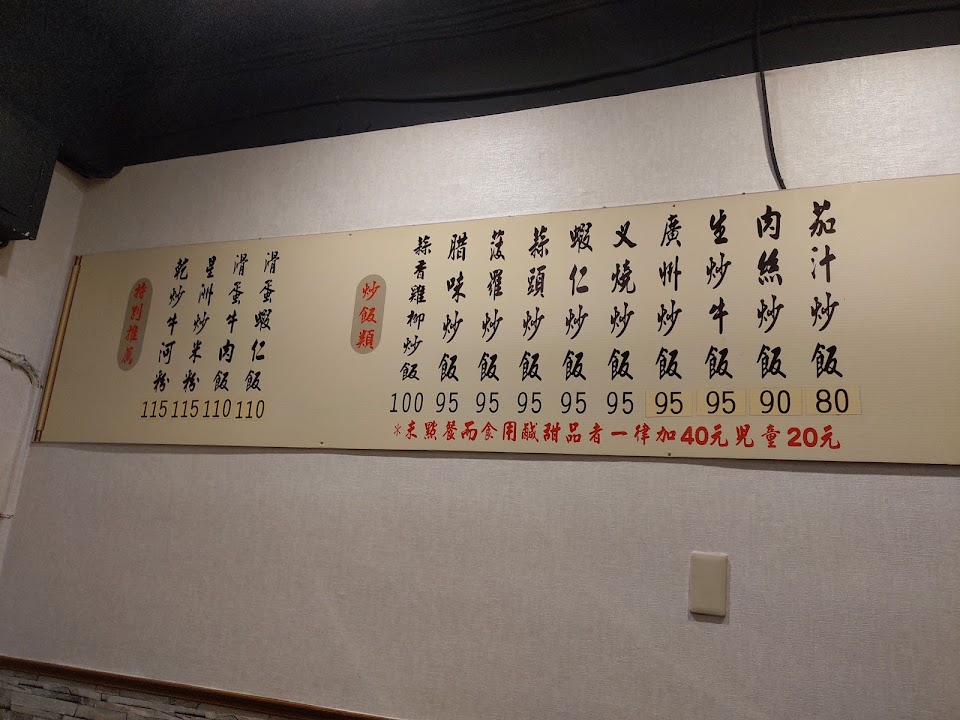 茄汁炒飯 80
肉絲炒飯 90
生炒牛飯 95
廣州炒飯 95
叉燒炒飯 95
蝦仁炒飯 95
蒜頭炒飯 95
菠羅炒飯 95
腊味炒飯 95
蒜香雞柳炒飯 100
炒飯類
滑蛋蝦仁飯 110
滑蛋牛肉飯 110
星洲炒米粉 115
乾炒牛河粉 115
特別推薦
※未點餐而食用鹹甜品者一律加40元兒童20元